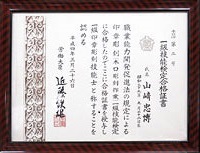 第三号
一級技能検定合格証書
氏名 山崎忠博
職業能力開発促進法の規定による
印章彫刻(木口彫刻作業)一級技能検定
に合格したのでここに合格証書を授与し
一級印章彫刻技能士と称することを
認める
平成四年三月二十六日
労働大臣 近藤鉄雄